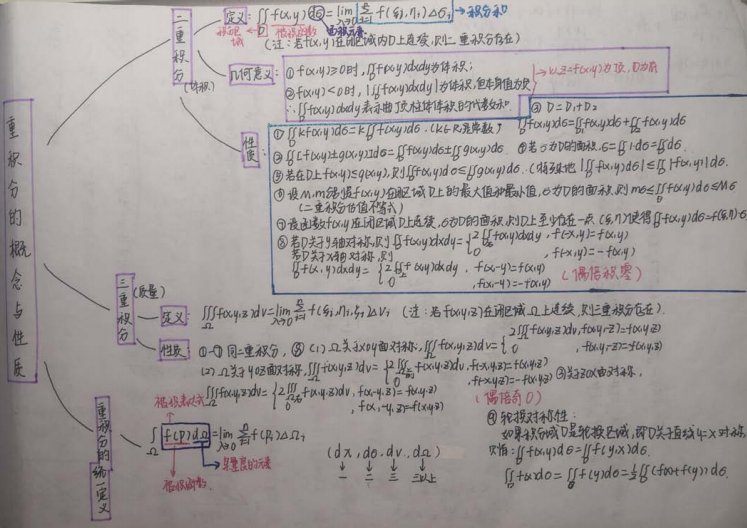 重积分的概念与性质
二重积分
(体积)
定义: ∬f(x,y)dσ = lim λ→0 Σ f(ξi,ηi)Δσi → 积分和
积分区域 D 被积函数 面积元素
(注: 若f(x,y)在闭区域D上连续, 则二重积分存在)
几何意义:
① f(x,y)≥0时, ∬f(x,y)dxdy为体积;
② f(x,y)<0时, |∬f(x,y)dxdy|为体积, 但本身值为负
∴∬f(x,y)dxdy表示曲顶柱体体积的代数和.
以z=f(x,y)为顶, D为底
性质:
① ∬kf(x,y)dσ=k∬f(x,y)dσ. (k∈R, 是常数)
③ D=D₁+D₂
∬f(x,y)dσ=∬f(x,y)dσ+∬f(x,y)dσ
② ∬[f(x,y)±g(x,y)]dσ=∬f(x,y)dσ±∬g(x,y)dσ.
④ 若σ为D的面积, σ=∬1·dσ=∬dσ.
⑤ 若在D上f(x,y)≤g(x,y), 则∬f(x,y)dσ≤∬g(x,y)dσ. (特殊地 |∬f(x,y)dσ|≤∬|f(x,y)|dσ.
⑥ 设M,m分别是f(x,y)在闭区域D上的最大值和最小值, σ为D的面积, 则 mσ≤∬f(x,y)dσ≤Mσ
(二重积分估值不等式)
⑦ 设函数f(x,y)在闭区域D上连续, σ为D的面积, 则D上至少存在一点(ξ,η)使得∬f(x,y)dσ=f(ξ,η)·σ
⑧ 若D关于y轴对称, 则∬f(x,y)dxdy={2∬f(x,y)dxdy, f(-x,y)=f(x,y)
0, f(-x,y)=-f(x,y)
若D关于x轴对称, 则
∬f(x,y)dxdy={2∬f(x,y)dxdy, f(x,-y)=f(x,y)
0, f(x,-y)=-f(x,y)
(偶倍积零)
三重积分
(质量)
定义: ∭f(x,y,z)dv=lim λ→0 Σ f(ξi,ηi,ζi)Δvi (注: 若f(x,y,z)在闭区域Ω上连续, 则三重积分存在).
性质: ①-⑦同二重积分, ⑧ (1) Ω关于xoy面对称, ∭f(x,y,z)dv={2∭f(x,y,z)dv, f(x,y,-z)=f(x,y,z)
0, f(x,y,-z)=-f(x,y,z)
(2) Ω关于yoz面对称, ∭f(x,y,z)dv={2∭f(x,y,z)dv, f(-x,y,z)=f(x,y,z)
0, f(-x,y,z)=-f(x,y,z)
③关于zox面对称,
∭f(x,y,z)dv={2∭f(x,y,z)dv, f(x,-y,z)=f(x,y,z)
0, f(x,-y,z)=f(x,y,z)
(偶倍奇0)
⑨ 轮换对称性:
如果积分域D是轮换区域, 即D关于直线y=x对称
则有: ∬f(x,y)dσ=∬f(y,x)dσ.
∬f(x)dσ=∬f(y)dσ=½∬(f(x)+f(y))dσ.
重积分的统一定义
被积表达式
∫Ω f(P)dΩ=lim λ→0 Σ f(Pi)ΔΩi
某量度的元素
被积函数
(dx, dσ, dv, dΩ)
一 二 三 三以上